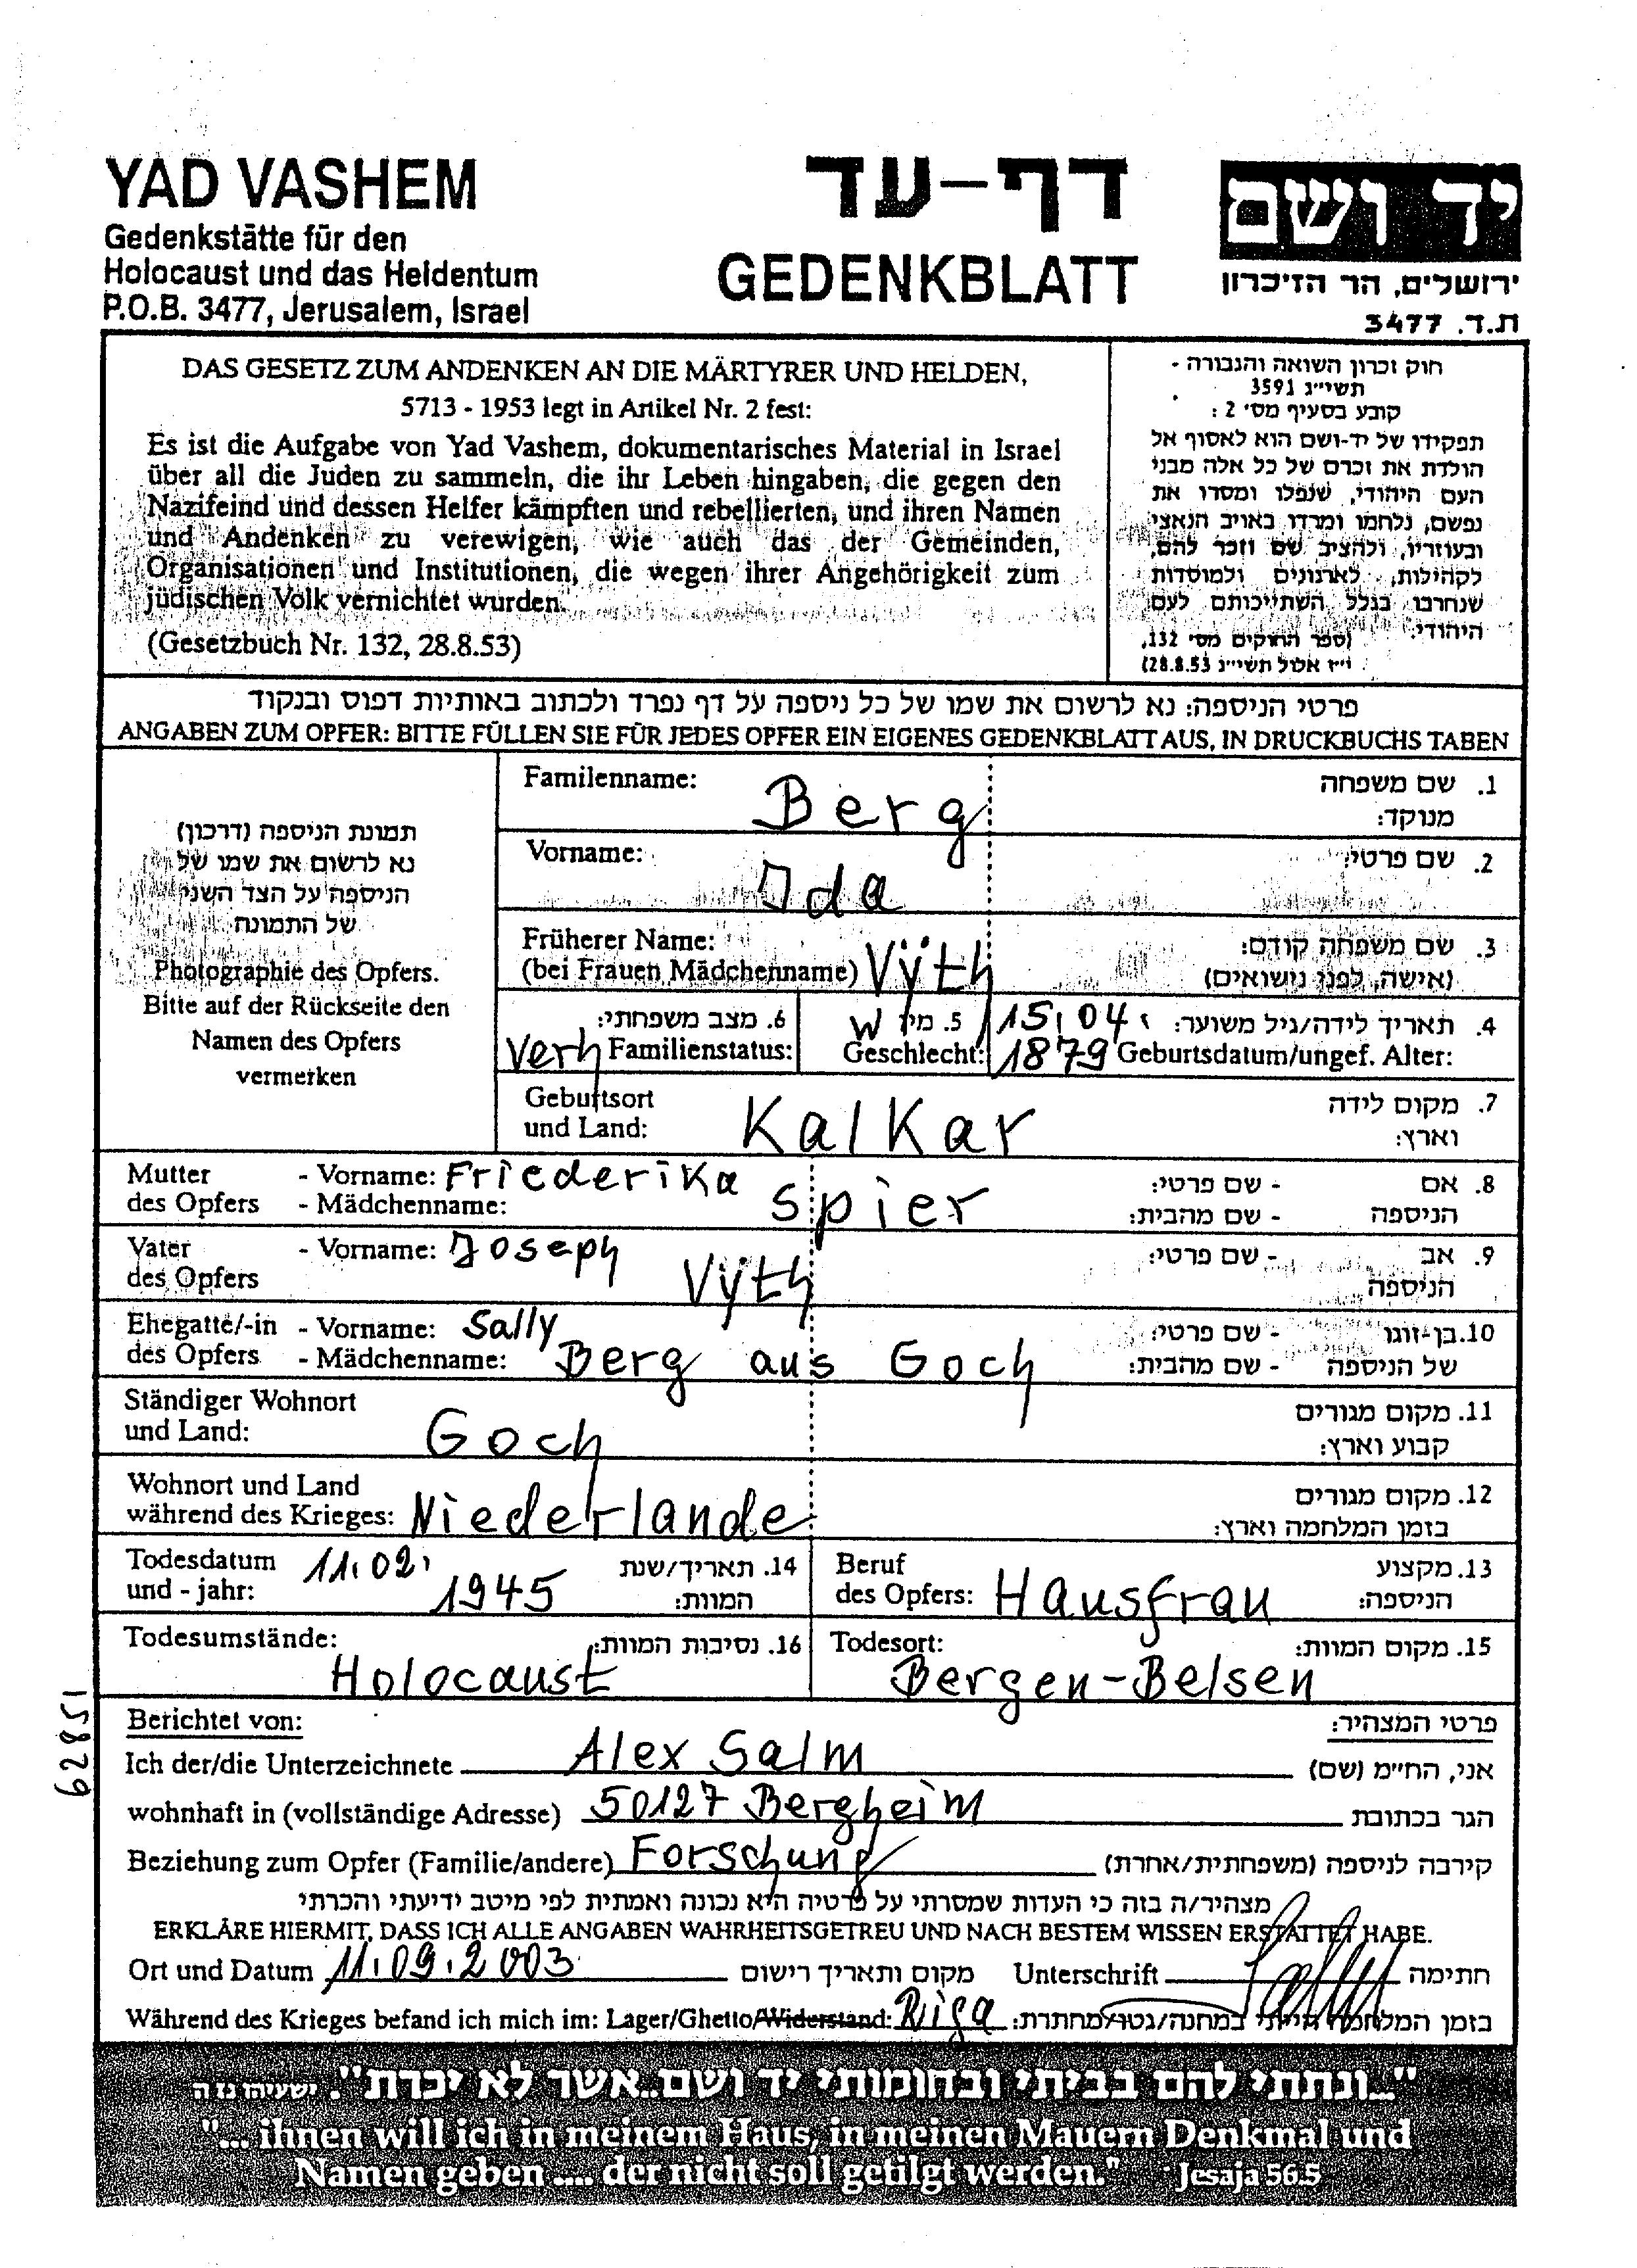 YAD VASHEM
Gedenkstätte für den
Holocaust und das Heldentum
P.O.B. 3477, Jerusalem, Israel
דף-עד
GEDENKBLATT
יד ושם
ירושלים, הר הזיכרון
ת.ד. 3477
DAS GESETZ ZUM ANDENKEN AN DIE MÄRTYRER UND HELDEN,
5713 - 1953 legt in Artikel Nr. 2 fest:
Es ist die Aufgabe von Yad Vashem, dokumentarisches Material in Israel
über all die Juden zu sammeln, die ihr Leben hingaben, die gegen den
Nazifeind und dessen Helfer kämpften und rebellierten, und ihren Namen
und Andenken zu verewigen, wie auch das der Gemeinden,
Organisationen und Institutionen, die wegen ihrer Angehörigkeit zum
jüdischen Volk vernichtet wurden.
(Gesetzbuch Nr. 132, 28.8.53)
חוק זכרון השואה והגבורה -
תשי״ג 3591
קובע בסעיף מס׳ 2 :
תפקידו של יד-ושם הוא לאסוף אל
הולדת את זכרם של כל אלה מבני
העם היהודי, שנפלו ומסרו את
נפשם, נלחמו ומרדו באויב הנאצי
ובעוזריו, ולהציב שם וזכר להם,
לקהילות, לארגונים ולמוסדות
שנחרבו בגלל השתייכותם לעם
היהודי. (ספר החוקים מס׳ 132,
י״ז אלול תשי״ג 28.8.53)
פרטי הניספה: נא לרשום את שמו של כל ניספה על דף נפרד ולכתוב באותיות דפוס ובנקוד
ANGABEN ZUM OPFER: BITTE FÜLLEN SIE FÜR JEDES OPFER EIN EIGENES GEDENKBLATT AUS, IN DRUCKBUCHS TABEN
תמונת הניספה (דרכון)
נא לרשום את שמו של
הניספה על הצד השני
של התמונה
Photographie des Opfers.
Bitte auf der Rückseite den
Namen des Opfers
vermerken
Familenname: Berg 1. שם משפחה
מנוקד:
Vorname: Ida 2. שם פרטי:
Früherer Name: 3. שם משפחה קודם:
(bei Frauen Mädchenname) Vÿth (אישה, לפני נישואים)
6. מצב משפחתי: W 5. מין 15.04. 4. תאריך לידה/גיל משוער:
verh Familienstatus: Geschlecht: 1879 Geburtsdatum/ungef. Alter:
Geburtsort 7. מקום לידה
und Land: Kalkar וארץ:
Mutter - Vorname: Friederika - שם פרטי: 8. אם
des Opfers - Mädchenname: Spier - שם מהבית: הניספה
Vater - Vorname: Joseph - שם פרטי: 9. אב
des Opfers Vÿth הניספה
Ehegatte/-in - Vorname: Sally - שם פרטי: 10. בן-זוגו
des Opfers - Mädchenname: Berg aus Goch - שם מהבית: של הניספה
Ständiger Wohnort 11. מקום מגורים
und Land: Goch קבוע וארץ:
Wohnort und Land 12. מקום מגורים
während des Krieges: Niederlande בזמן המלחמה וארץ:
Todesdatum 11.02. 14. תאריך/שנת
und - jahr: 1945 המוות:
Beruf 13. מקצוע
des Opfers: Hausfrau הניספה:
Todesumstände: 16. נסיבות המוות:
Holocaust
Todesort: 15. מקום המוות:
Bergen-Belsen
15829
Berichtet von: פרטי המצהיר:
Ich der/die Unterzeichnete Alex Salm אני, החי״מ (שם)
wohnhaft in (vollständige Adresse) 50127 Bergheim הגר בכתובת
Beziehung zum Opfer (Familie/andere) Forschung קירבה לניספה (משפחתית/אחרת)
מצהיר/ה בזה כי העדות שמסרתי על פרטיה היא נכונה ואמתית לפי מיטב ידיעתי והכרתי
ERKLÄRE HIERMIT, DASS ICH ALLE ANGABEN WAHRHEITSGETREU UND NACH BESTEM WISSEN ERSTATTET HABE.
Ort und Datum 11.09.2003 מקום ותאריך רישום Unterschrift חתימה
Während des Krieges befand ich mich im: Lager/Ghetto/Widerstand: Riga בזמן המלחמה הייתי במחנה/גטו/מחתרת:
"..ונתתי להם בביתי ובחומותי יד ושם..אשר לא יכרת". ישעיהו נו ה
"... ihnen will ich in meinem Haus, in meinen Mauern Denkmal und
Namen geben .... der nicht soll getilgt werden." Jesaja 56.5